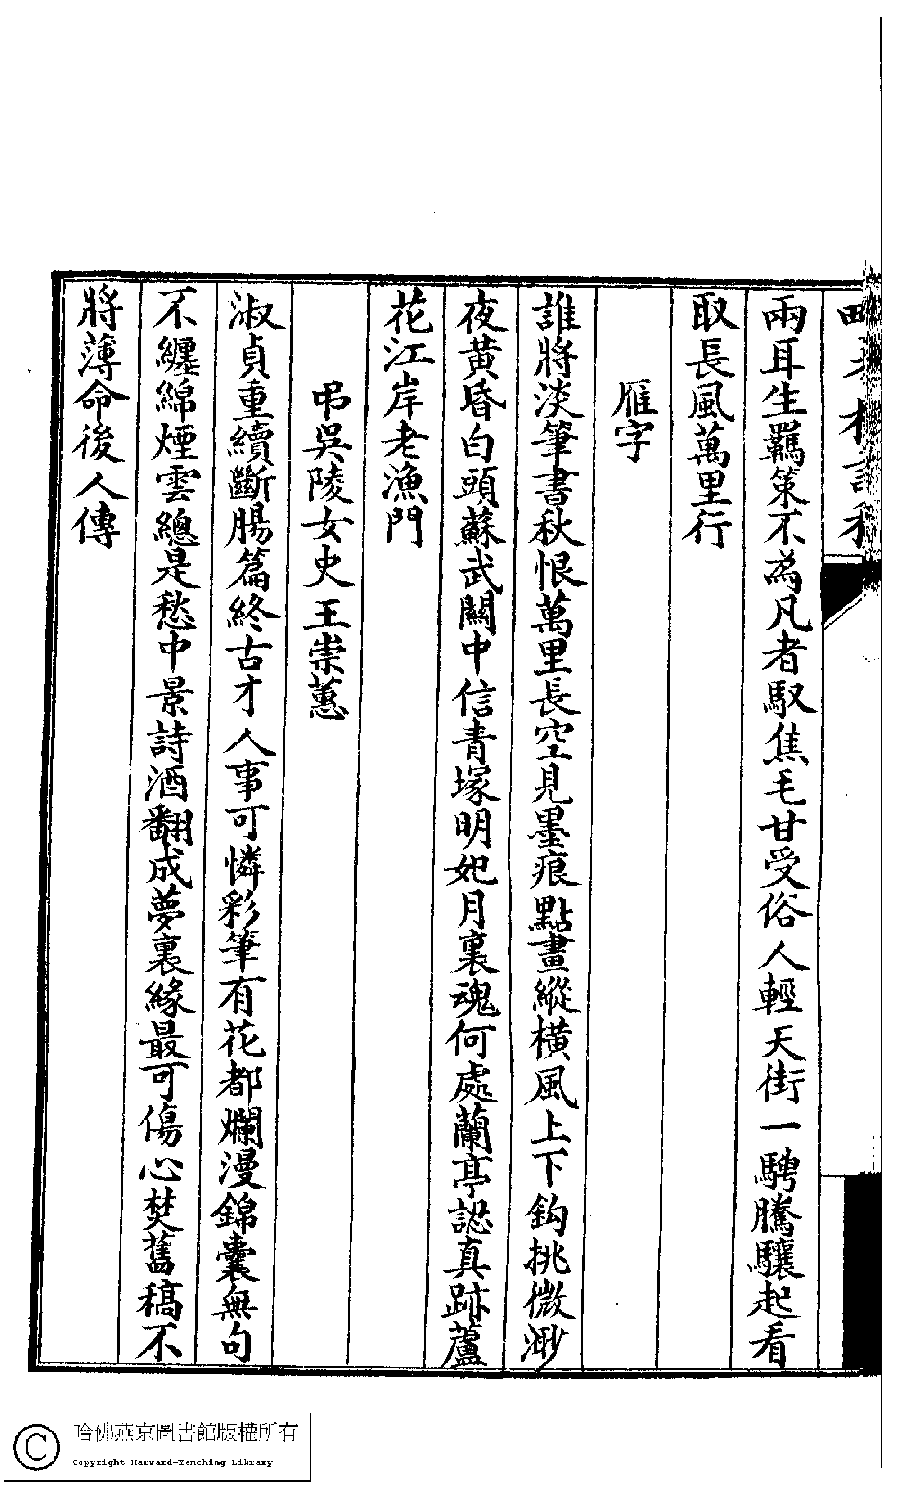 兩耳生羈策不為凡者馭焦毛甘受俗人輕天街一騁騰驤起看
取長風萬里行
雁字
誰將淡筆書秋恨萬里長空見墨痕點畫縱橫風上下鈎挑微渺
夜黃昏白頭蘇武關中信青塚明妃月裏魂何處蘭亭認真跡蘆
花江岸老漁門
弔吳陵女史王崇蕙
淑貞重續斷腸篇終古才人事可憐彩筆有花都爛漫錦囊無句
不纏綿煙雲總是愁中景詩酒翻成夢裏緣最可傷心焚舊稿不
將薄命後人傳
哈佛燕京圖書館版權所有
Copyright Harvard-Yenching Library